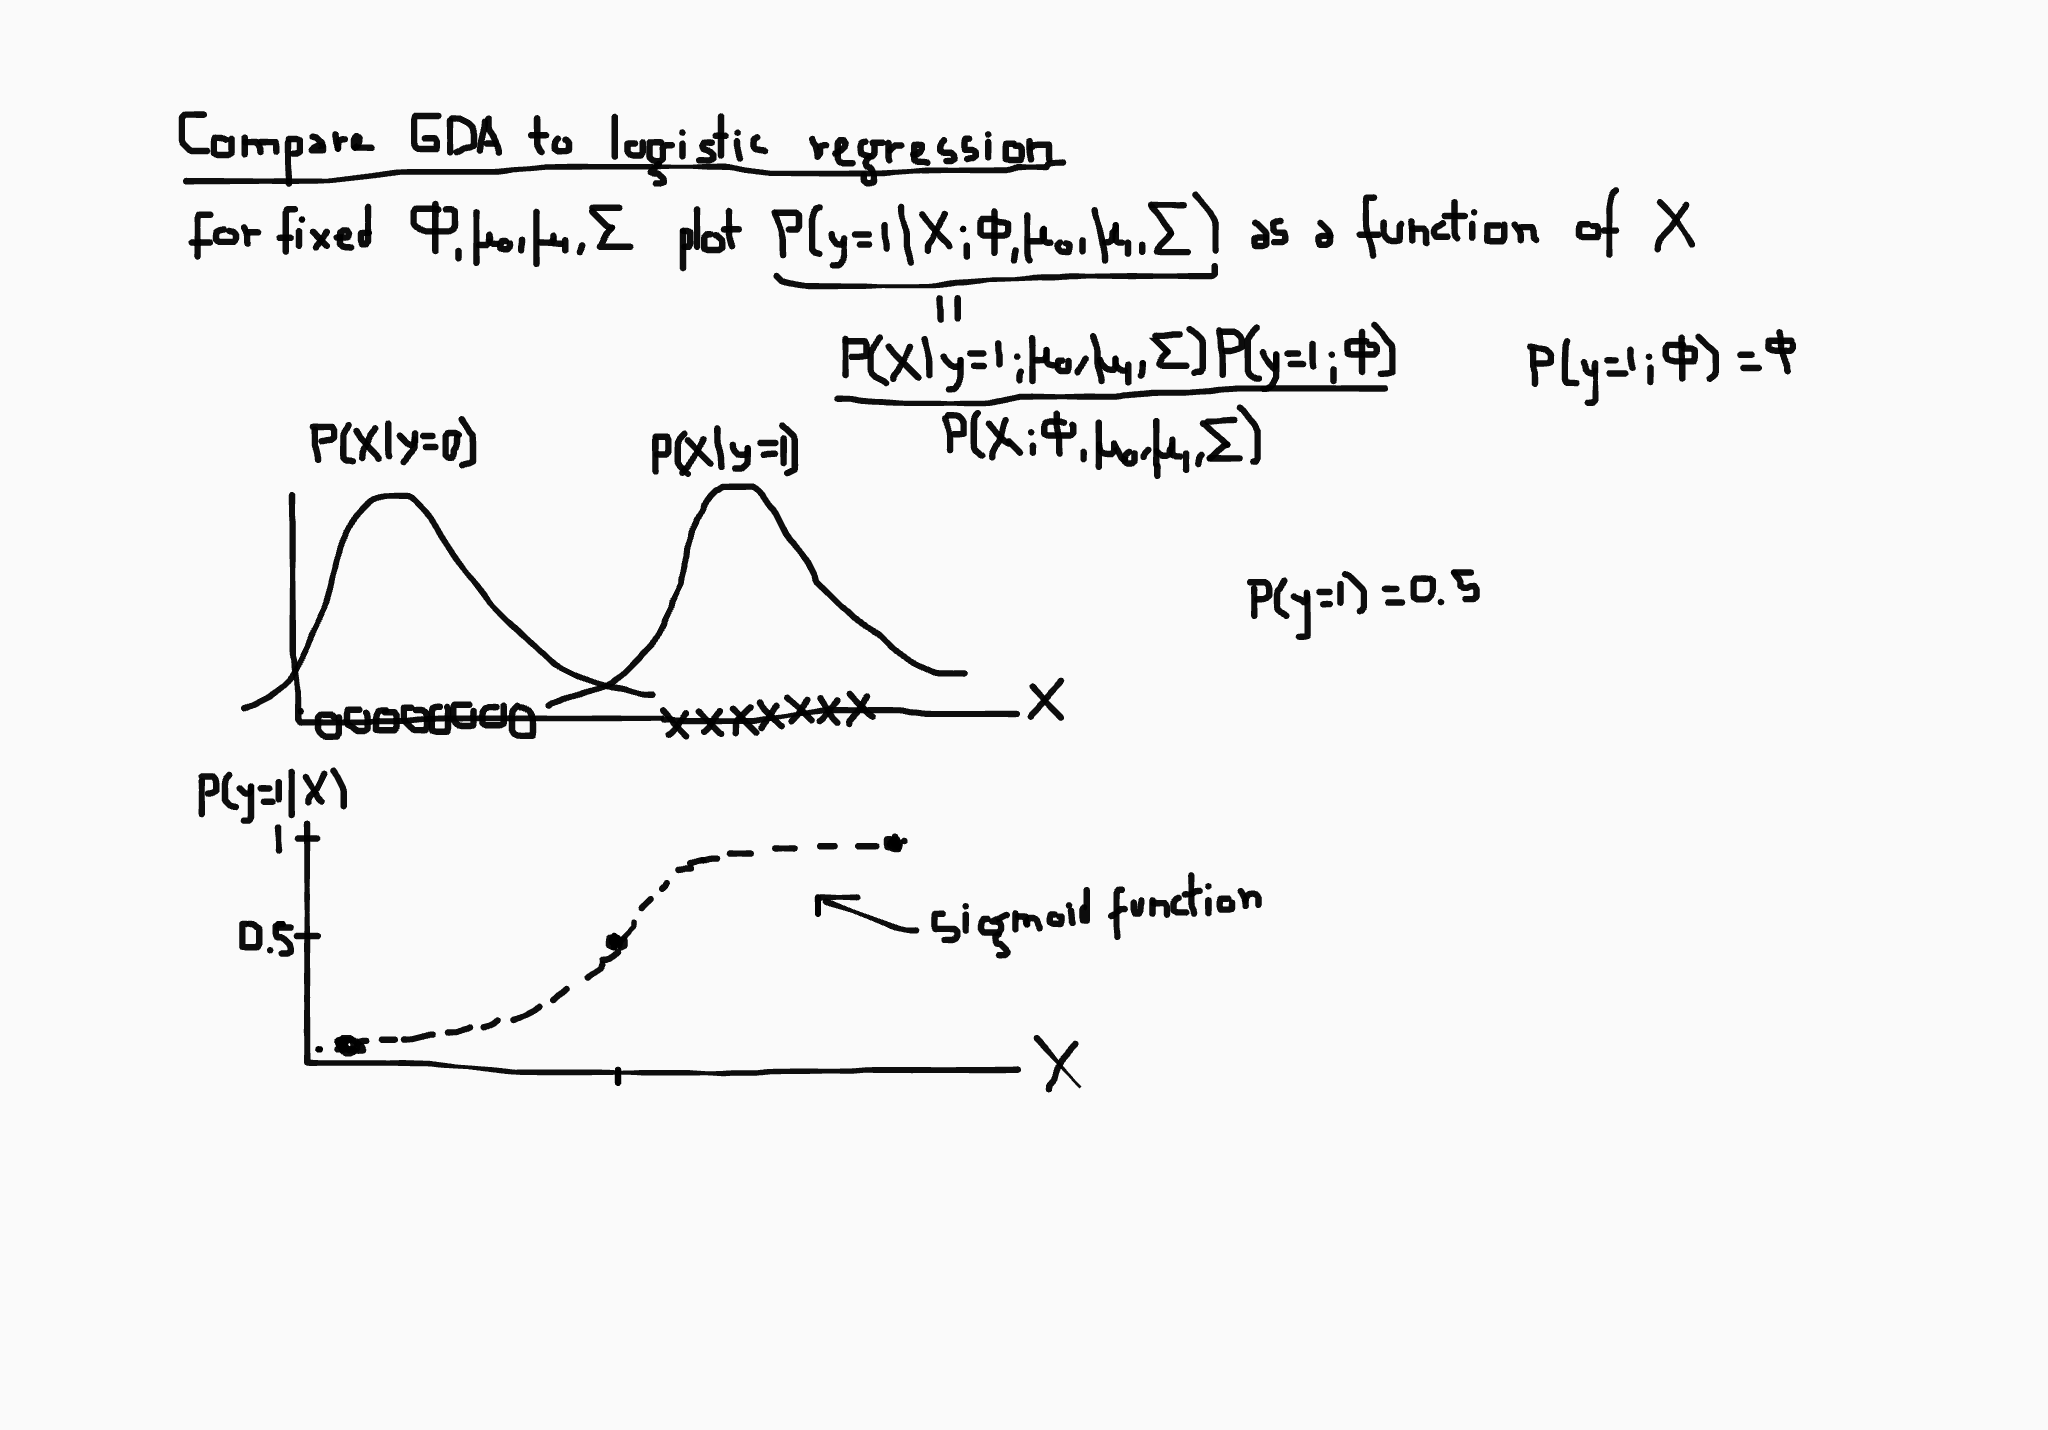 Compare GDA to logistic regression
for fixed Φ, μ₀, μ₁, Σ plot P(y=1|X; Φ, μ₀, μ₁, Σ) as a function of X
=
P(X|y=1; μ₀, μ₁, Σ) P(y=1; Φ)
P(X; Φ, μ₀, μ₁, Σ)
P(y=1; Φ) = Φ
P(X|y=0)
P(X|y=1)
P(y=1) = 0.5
0 0 0 0 0 0 0 0
x x x x x x x
X
P(y=1|X)
1
0.5
sigmoid function
X